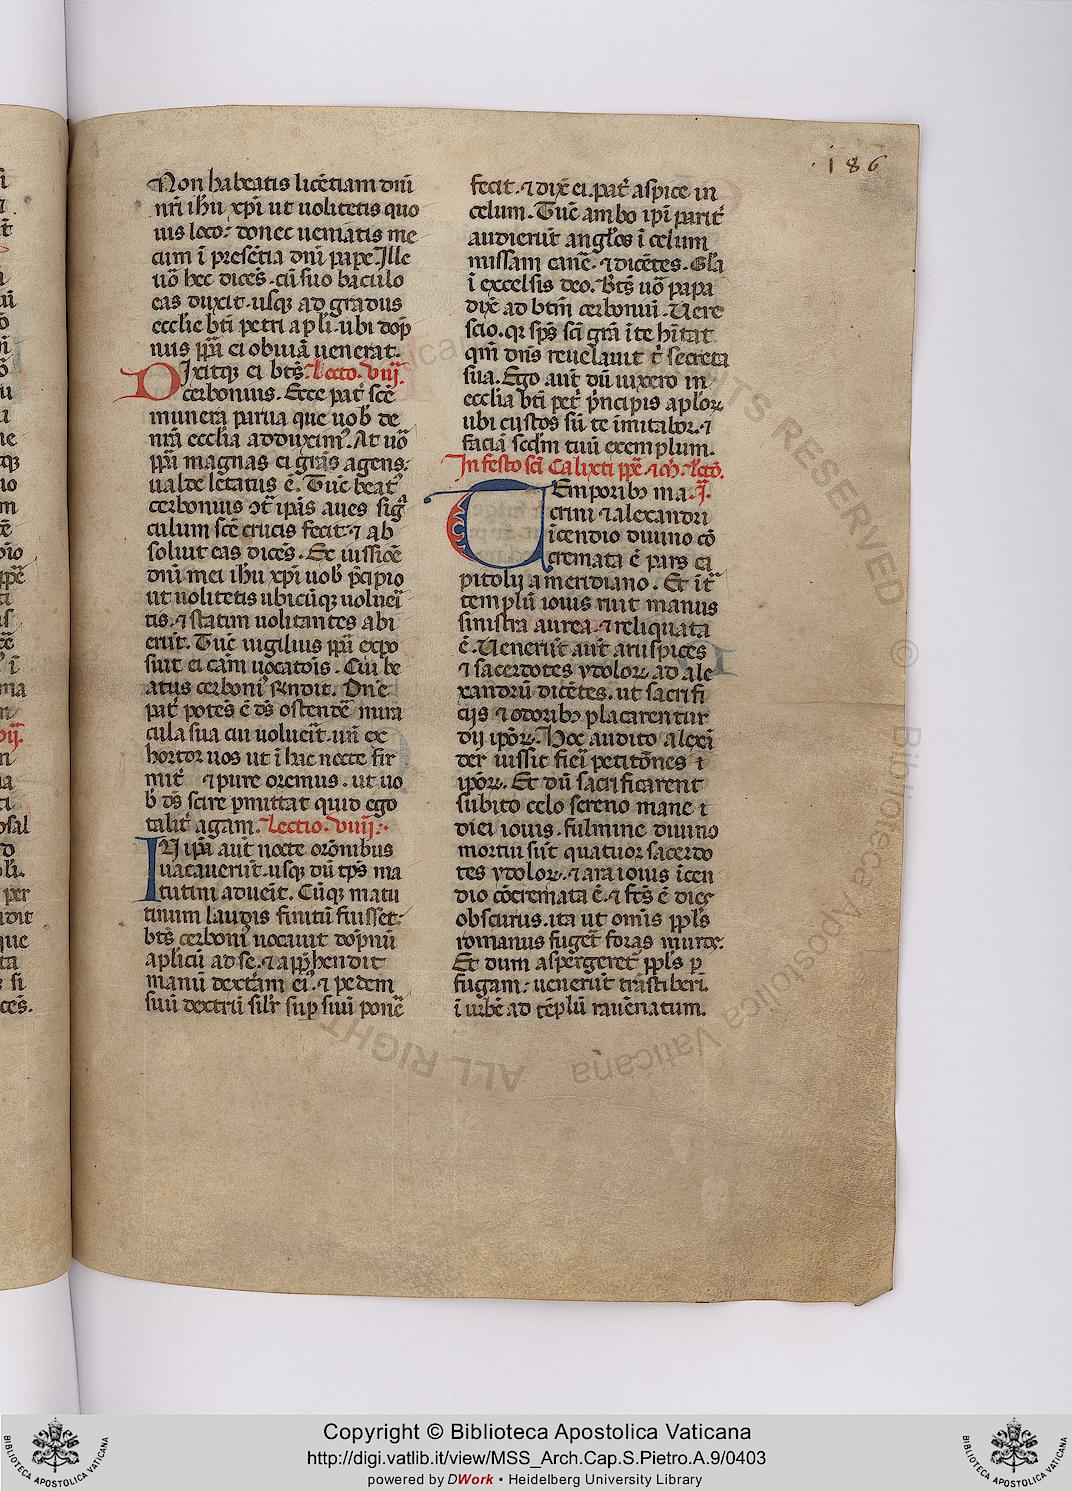 · 186
Non habeatis licẽtiam dnĩ
nrĩ ihũ xpĩ ut uolitetis quo
uis loco: donec ueniatis me
cum ĩ presẽtia dnĩ pape. Ille
uõ hec dicẽs. cũ suo baculo
eas duxit. usqꝫ ad gradus
ecclie btĩ petri apli. ubi dop̃
nus ꝑꝑã ei obuiã uenerat.
Dixitqꝫ ei btẽ. Lecto. viij.
cerbonius. Ecce pat̃ scẽ
munera parua que uob̃ de
nrã ecclia adduximꝰ. At uõ
ꝑꝑã magnas ei gr̃as agens.
ualde letatus ẽ. Tũc beatꝰ
cerbonius ɔt̃ ip̃as aues sig̃
culum scẽ crucis fecit. ⁊ ab
soluit eas dicẽs. Ex iussiõe
dnĩ mei ihũ xpĩ uob̃ p̃cipio
ut uolitetis ubicũqꝫ uoluei̇̃
tis. ⁊ statim uolitantes abi
erũt. Tũc uigilius ꝑꝑã expo
suit ei cãm uocatõis. Cui be
atus cerboniꝰ rñdit. Dnẽ
pat̃ potẽs ẽ ds̃ ostendẽ mira
cula sua cui uoluerit̃. uñ ex
hortor uos ut ĩ hac nocte fir
mit̃ ⁊ pure oremus. ut uo
b̃ ds̃ scire ꝑmittat quid ego
talit̃ agam. Lectio. viiij:·
IN ip̃a aut̃ nocte orõnibus
uacauerũt. usqꝫ dũ tp̃s ma
tutini aduẽit. Cũqꝫ matu
tinum laudis finitũ fuisset.
bts̃ cerboniꝰ uocauit dop̃nũ
aplicũ ad se. ⁊ apꝑhendit
manũ dext̃am eiꝰ. ⁊ pedem
suũ dextrũ silr̃ suꝑ suũ ponẽ
fecit. ⁊ dix̃ ei. pat̃ aspice in
celum. Tũc ambo ip̃i parit̃
audierũt anglos ĩ celum
missam canẽ. ⁊ dicẽtes. Glã
ĩ excelsis deo. Bts̃ uõ papa
dix̃ ad btm̃ cerboniũ. Uere
scio. qr̃ sp̃s scĩ grã ĩ te hĩtat
qm̃ dns̃ reuelauit t̃ secreta
sua. Ego aut̃ dũ iuxero in
ecclia btĩ pet̃ p̃ncipis aploꝝ
ubi custos sũ te imitaboꝝ. ⁊
faciã scdm̃ tuũ exemplum.
In festo scĩ Calixti ꝑꝑẽ. ⁊ m̃. Lctõ.
Temporibꝫ ma. j̃.
crini ⁊ alexandri
ĩcendio diuino cõ
cremata ẽ pars ca
pitolij a meridiano. Et ĩt̃
templũ iouis ruit manus
sinistra aurea. ⁊ reliquata
ẽ. Uenerũt aut̃ aruspices
⁊ sacerdotes ydoloꝝ ad ale
xandrũ dicẽtes. ut sacrifi
ciis ⁊ odoribꝫ placarentur
dij ip̃oꝝ. Hoc audito alexã
der iussit fieĩ petitõnes ĩ
ip̃oꝝ. Et dũ sacrificarent
subito celo sereno mane ĩ
diei iouis. fulmine diuino
mortui sũt quatuor sacerdo
tes ydoloꝝ. ⁊ ara iouis ĩcen
dio cõcremata ẽ. ⁊ fts̃ ẽ dies
obscurus. ita ut omĩs ꝑꝑls̃
romanus fuget̃ foras murꝰ.
Et dum aspergeret̃ ꝑꝑls̃ ꝑ
fugam: uenerũt trãstiberĩ
ĩ urbẽ ad tẽplũ rauẽnatum.
Copyright © Biblioteca Apostolica Vaticana
http://digi.vatlib.it/view/MSS_Arch.Cap.S.Pietro.A.9/0403
powered by DWork • Heidelberg University Library
BIBLIOTECA APOSTOLICA VATICANA
BIBLIOTECA APOSTOLICA VATICANA